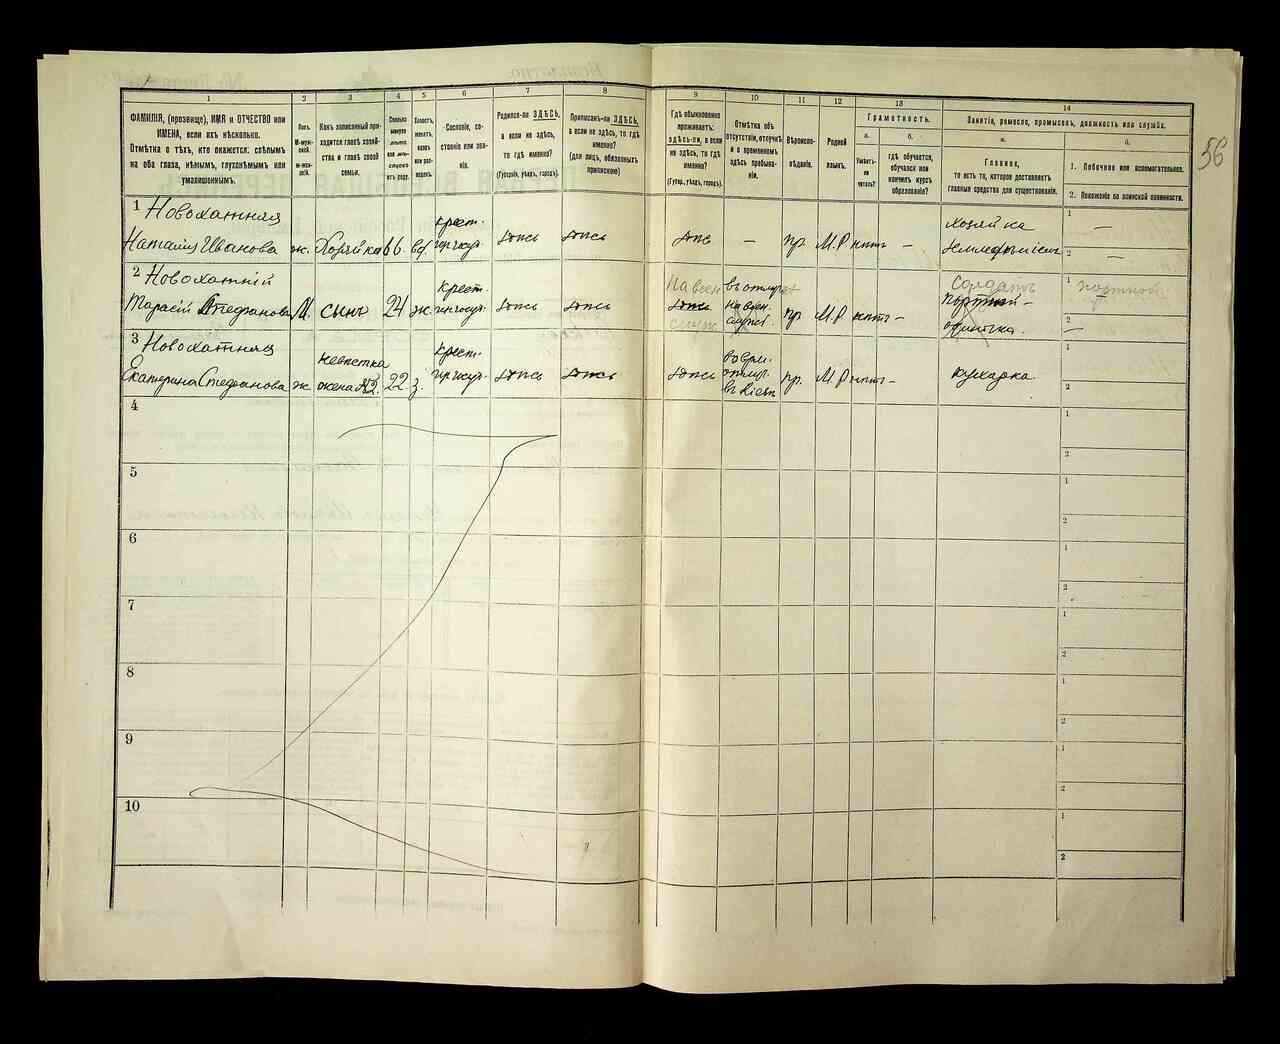 56
1 2 3 4 5 6 7 8 9 10 11 12 13 14
ФАМИЛІЯ, (прозвище), ИМЯ и ОТЧЕСТВО или
ИМЕНА, если ихъ нѣсколько.
Отмѣтка о тѣхъ, кто окажется: слѣпымъ
на оба глаза, нѣмымъ, глухонѣмымъ или
умалишоннымъ.
Полъ.
М-муж-
ской.
Ж-жен-
скій.
Какъ записанный при-
ходится главѣ хозяй-
ства и главѣ своей
семьи.
Сколько
минуло
лѣтъ
или мѣ-
сяцевъ
отъ роду.
Холостъ,
женатъ,
вдовъ
или раз-
веденъ.
Сословіе, со-
стояніе или зва-
ніе.
Родился-ли ЗДѢСЬ,
а если не здѣсь,
то гдѣ именно?
(Губернія, уѣздъ, городъ).
Приписанъ-ли ЗДѢСЬ,
а если не здѣсь, то гдѣ
именно?
(для лицъ, обязанныхъ
припискою)
Гдѣ обыкновенно
проживаетъ:
здѣсь-ли, а если
не здѣсь, то гдѣ
именно?
(Губер., уѣздъ, городъ).
Отмѣтка объ
отсутствіи, отлучкѣ
и о временномъ
здѣсь пребыва-
ніи.
Вѣроиспо-
вѣданіе.
Родной
языкъ.
Грамотность.
а.
Умѣетъ-
ли
читать?
б.
гдѣ обучается,
обучался или
кончилъ курсъ
образованія?
Занятіе, ремесло, промыселъ, должность или служба.
а.
Главное,
то есть то, которое доставляетъ
главныя средства для существованія.
б.
1. Побочное или вспомогательное.
2. Положеніе по воинской повинности.
1 Новохатняя
Наталія Иванова ж. Хозяйка 66. вд. крест. здѣсь здѣсь здѣсь — пр. М.Р нѣтъ — хозяйка
1 —
2 —
2 Новохатній
Тарасій Стефановъ М. сынъ 24 ж. крест. здѣсь здѣсь
На воен
здѣсь
служ
на воен.
служб.
пр М.Р нѣтъ —
Солдатъ
портной
1 портной
2 —
3 Новохатняя
Екатерина Стефанова ж.
невѣстка
жена №2. 22 з. крест. здѣсь здѣсь здѣсь
пр. М.Р нѣтъ — кухарка
1
2
4
1
2
5
1
2
6
1
2
7
1
2
8
1
2
9
1
2
10
1
2